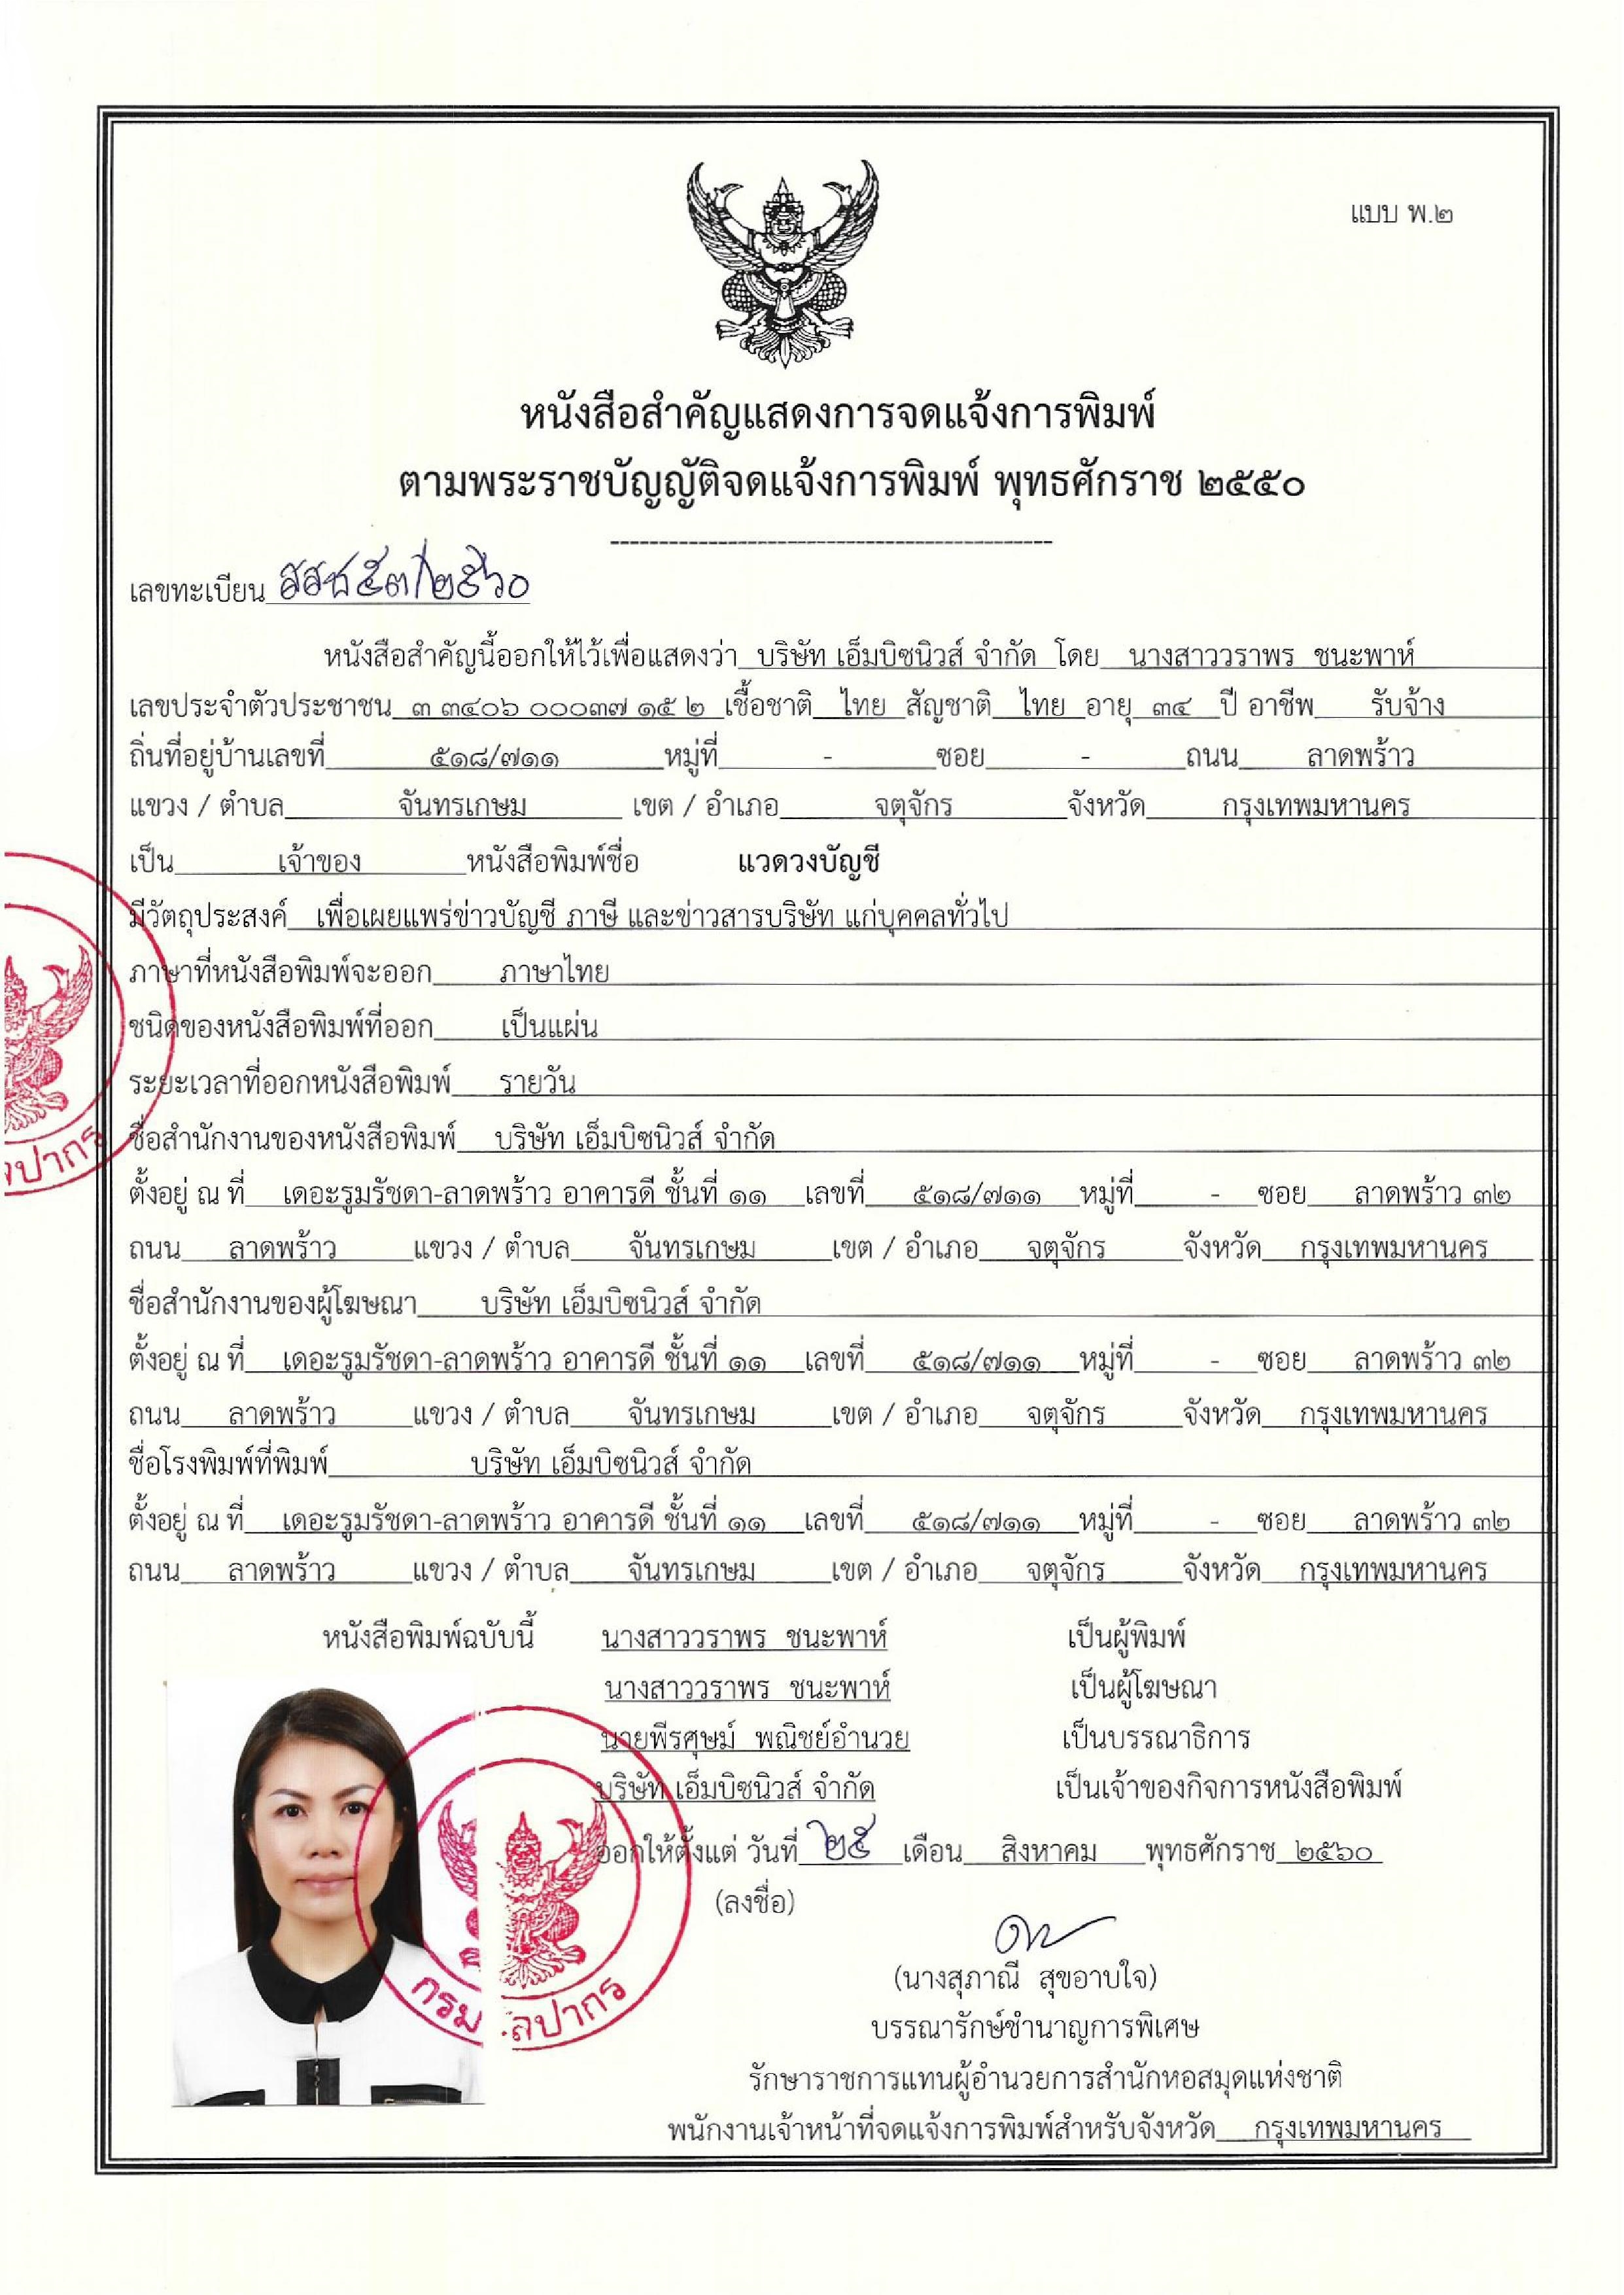 แบบ พ.๒
หนังสือสำคัญแสดงการจดแจ้งการพิมพ์
ตามพระราชบัญญัติจดแจ้งการพิมพ์ พุทธศักราช ๒๕๕๐
เลขทะเบียน สสช๕๓/๒๕๖๐
หนังสือสำคัญนี้ออกให้ไว้เพื่อแสดงว่า บริษัท เอ็มบิซนิวส์ จำกัด โดย นางสาววราพร ชนะพาห์
เลขประจำตัวประชาชน ๓ ๓๔๐๖ ๐๐๐๓๗ ๑๕ ๒ เชื้อชาติ ไทย สัญชาติ ไทย อายุ ๓๔ ปี อาชีพ รับจ้าง
ถิ่นที่อยู่บ้านเลขที่ ๕๑๘/๗๑๑ หมู่ที่ - ซอย - ถนน ลาดพร้าว
แขวง / ตำบล จันทรเกษม เขต / อำเภอ จตุจักร จังหวัด กรุงเทพมหานคร
เป็น เจ้าของ หนังสือพิมพ์ชื่อ แวดวงบัญชี
มีวัตถุประสงค์ เพื่อเผยแพร่ข่าวบัญชี ภาษี และข่าวสารบริษัท แก่บุคคลทั่วไป
ภาษาที่หนังสือพิมพ์จะออก ภาษาไทย
ชนิดของหนังสือพิมพ์ที่ออก เป็นแผ่น
ระยะเวลาที่ออกหนังสือพิมพ์ รายวัน
ชื่อสำนักงานของหนังสือพิมพ์ บริษัท เอ็มบิซนิวส์ จำกัด
ตั้งอยู่ ณ ที่ เดอะรูมรัชดา-ลาดพร้าว อาคารดี ชั้นที่ ๑๑ เลขที่ ๕๑๘/๗๑๑ หมู่ที่ - ซอย ลาดพร้าว ๓๒
ถนน ลาดพร้าว แขวง / ตำบล จันทรเกษม เขต / อำเภอ จตุจักร จังหวัด กรุงเทพมหานคร
ชื่อสำนักงานของผู้โฆษณา บริษัท เอ็มบิซนิวส์ จำกัด
ตั้งอยู่ ณ ที่ เดอะรูมรัชดา-ลาดพร้าว อาคารดี ชั้นที่ ๑๑ เลขที่ ๕๑๘/๗๑๑ หมู่ที่ - ซอย ลาดพร้าว ๓๒
ถนน ลาดพร้าว แขวง / ตำบล จันทรเกษม เขต / อำเภอ จตุจักร จังหวัด กรุงเทพมหานคร
ชื่อโรงพิมพ์ที่พิมพ์ บริษัท เอ็มบิซนิวส์ จำกัด
ตั้งอยู่ ณ ที่ เดอะรูมรัชดา-ลาดพร้าว อาคารดี ชั้นที่ ๑๑ เลขที่ ๕๑๘/๗๑๑ หมู่ที่ - ซอย ลาดพร้าว ๓๒
ถนน ลาดพร้าว แขวง / ตำบล จันทรเกษม เขต / อำเภอ จตุจักร จังหวัด กรุงเทพมหานคร
หนังสือพิมพ์ฉบับนี้ นางสาววราพร ชนะพาห์ เป็นผู้พิมพ์
นางสาววราพร ชนะพาห์ เป็นผู้โฆษณา
นายพีรศุษม์ พณิชย์อำนวย เป็นบรรณาธิการ
บริษัท เอ็มบิซนิวส์ จำกัด เป็นเจ้าของกิจการหนังสือพิมพ์
ออกให้ตั้งแต่ วันที่ ๒๕ เดือน สิงหาคม พุทธศักราช ๒๕๖๐
(ลงชื่อ)
(นางสุภาณี สุขอาบใจ)
บรรณารักษ์ชำนาญการพิเศษ
รักษาราชการแทนผู้อำนวยการสำนักหอสมุดแห่งชาติ
พนักงานเจ้าหน้าที่จดแจ้งการพิมพ์สำหรับจังหวัด กรุงเทพมหานคร
กรม ลปากร